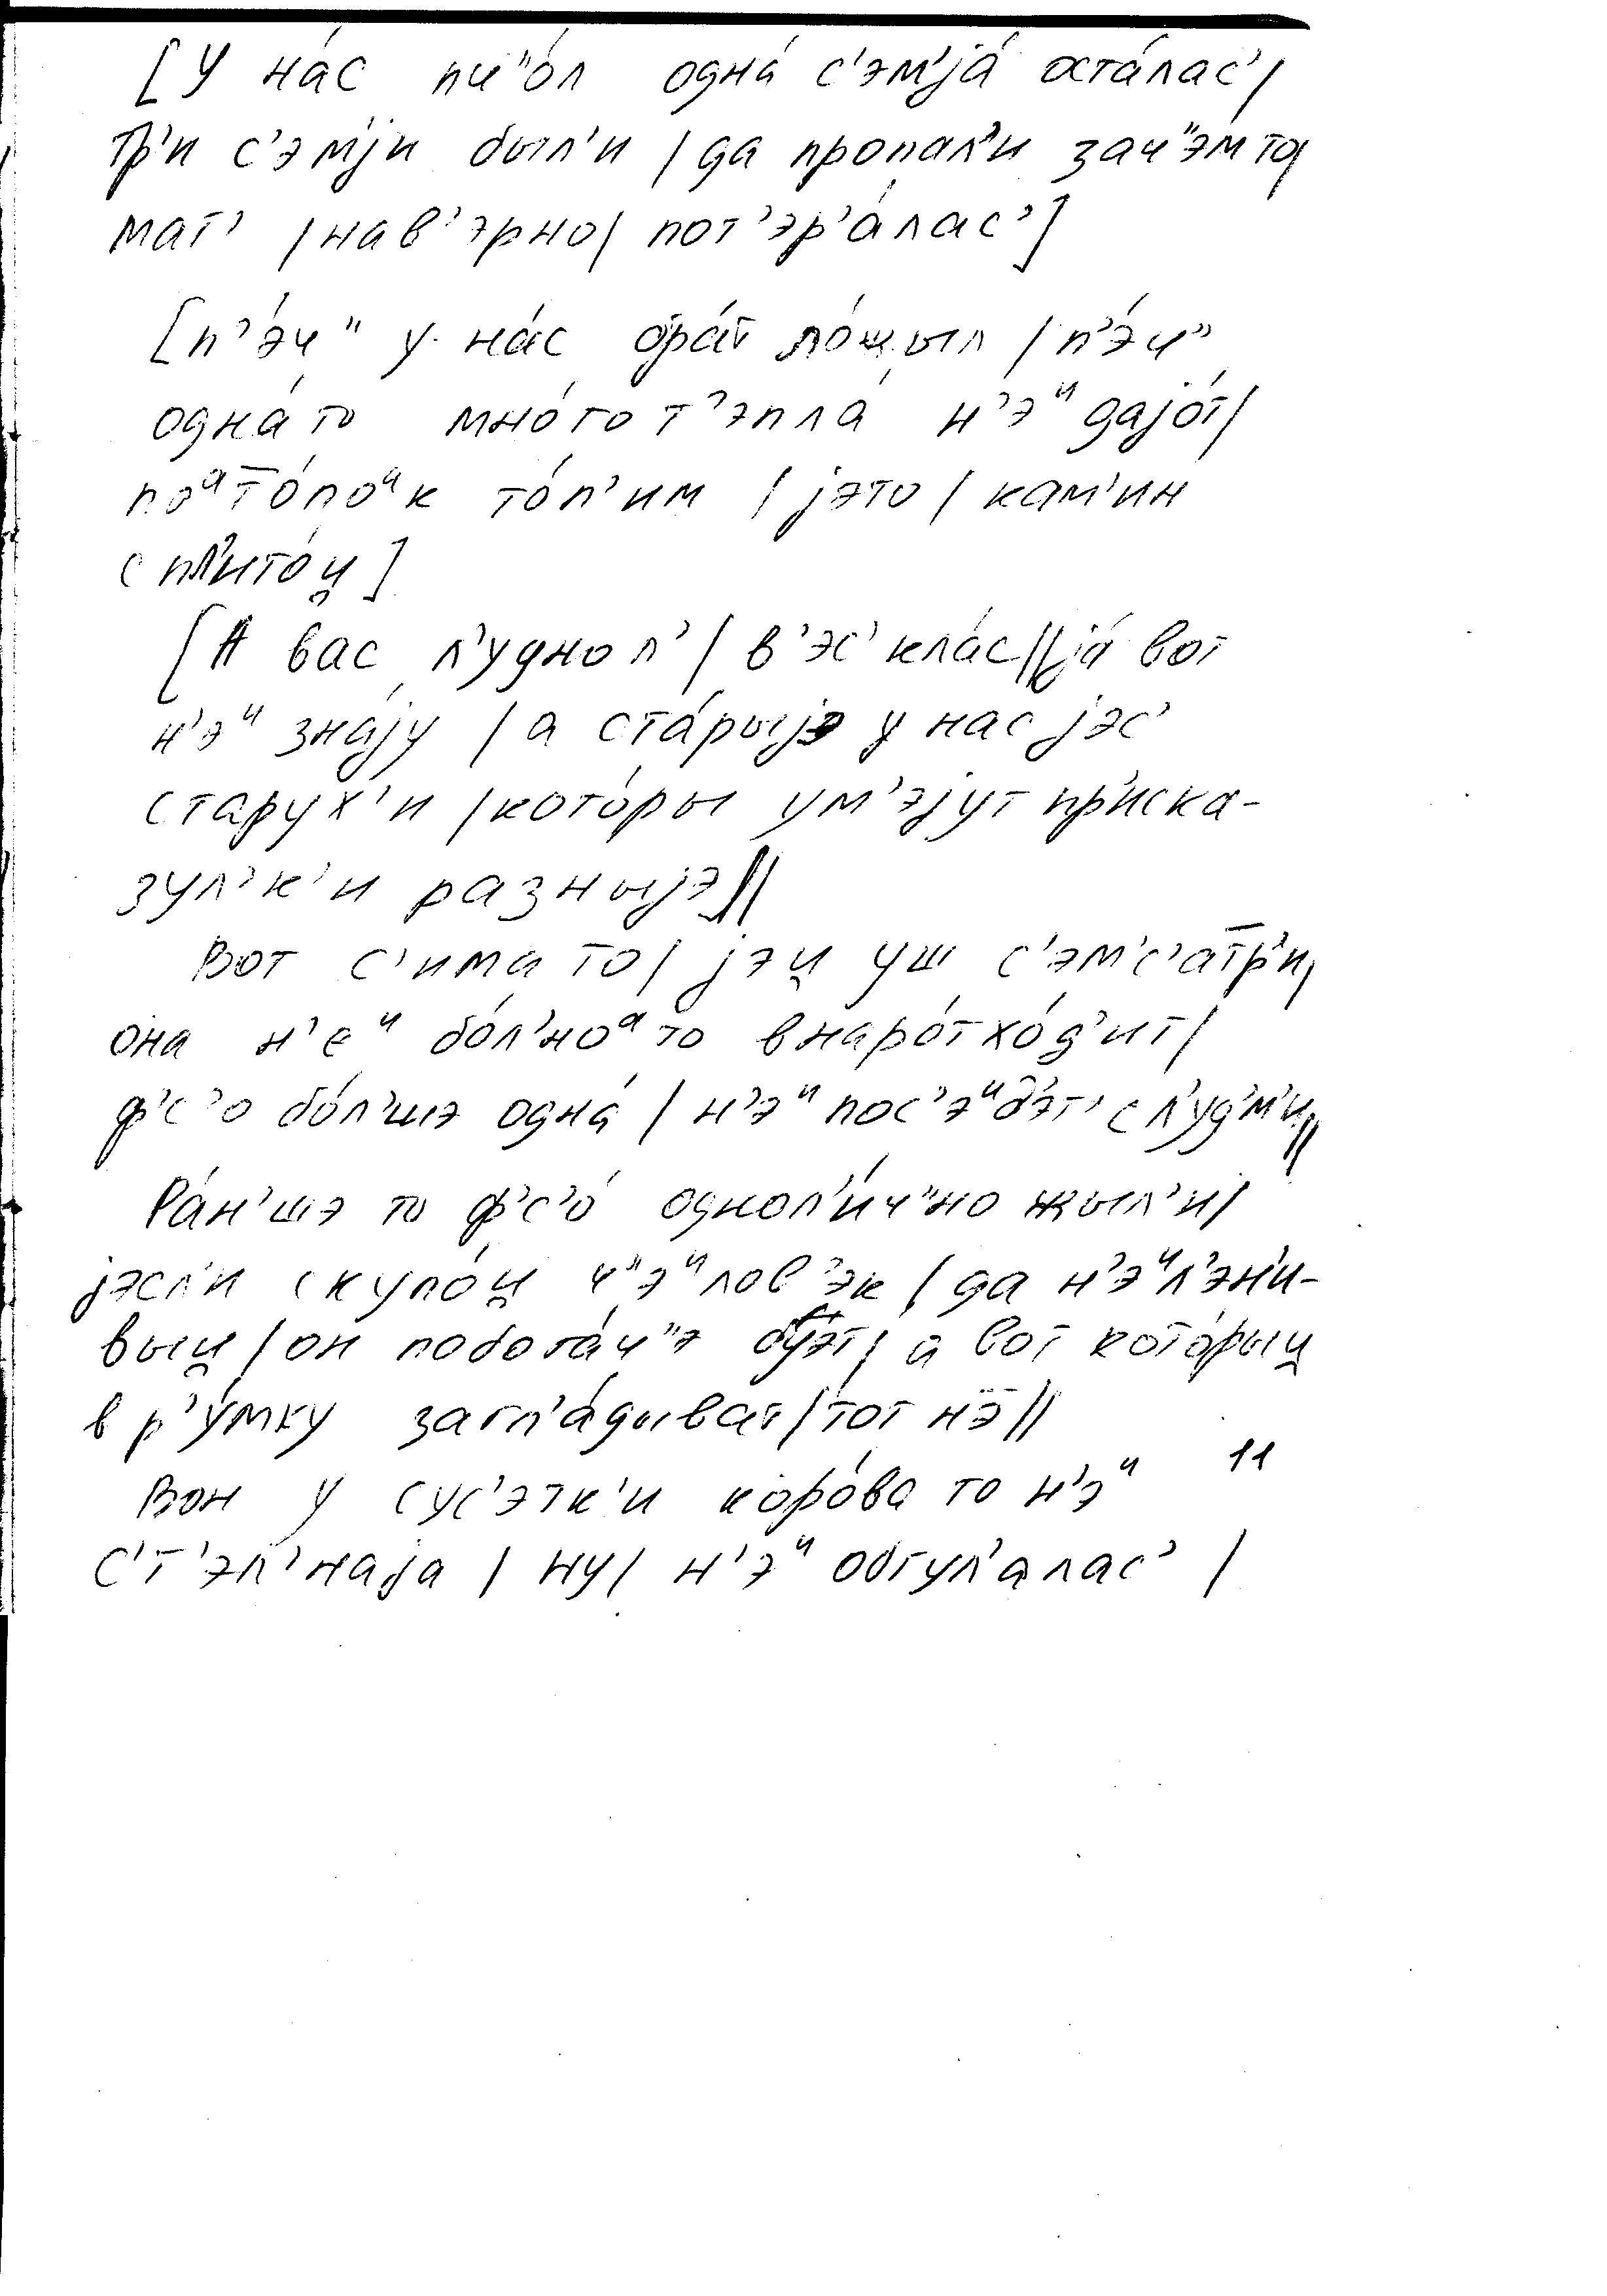 [У на́с пч"о́л одна́ с'эм'jа́ оста́лас'/
тр'и с'эмjи был'и / да пропал'и зач"эмто/
мат' / нав'эрно / пот'эр'а́лас']
[п'э́ч" у на́с бра́т ло́жыл / п'э́ч"
одна́то мно́го т'эпла́ н'эᶦᶦ даjо́т/
поᵃто́поᵃк то́п'им / jэто / кам'ин
с пл'ито́й̯]
[А вас л'удно л' / в'эс' кла́с // jа́ вот
н'эᶦᶦ зна́jу / а ста́рыjэ у нас jэс'
старух'и / кото́ры ум'эjут пр'иска-
зул'к'и разныjэ //
Вот с'има то / jэй̯ уш с'эм'с'атр'и/
она н'еᶦᶦ бо́л'ноᵃто внаро́тхо́д'ит/
ф'с'о бо́л'шэ одна́ / н'эᶦᶦ пос'эᶦᶦд'э́т' с л'уд'м'и //
Ра́н'шэ то ф'с'о́ однол'и́ч"но жыл'и/
jэсл'и скупо́й̯ ч"эᶦᶦлов'эк / да н'эᶦᶦл'эн'и-
вый̯ / он побога́ч"э буэт / а вот кото́рый̯
в р'у́мку загл'а́дыват / тот нэ̄ //
11
Вон у сус'э́тк'и коро́ва то н'эᶦᶦ
с'т'эл'наjа / ну / н'эᶦᶦ обгул'алас' /